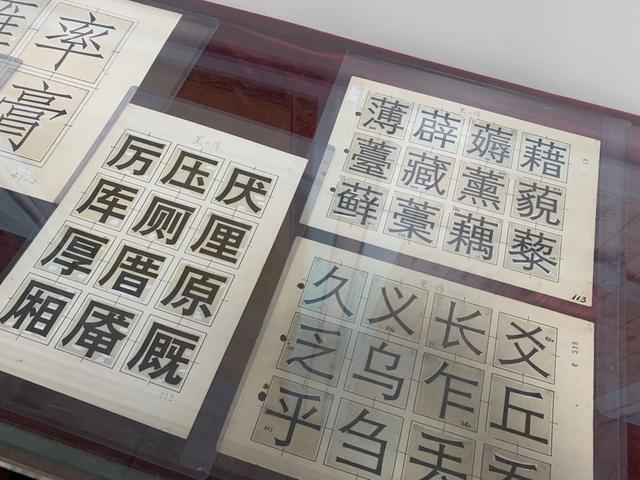 率
膏
历压厌
厍厕厘
厚厝原
厢厣厩
薄薜薅藉
薹藏薰藐
藓藁藕藜
113
久义长爻
乏乌乍丘
乎刍丢